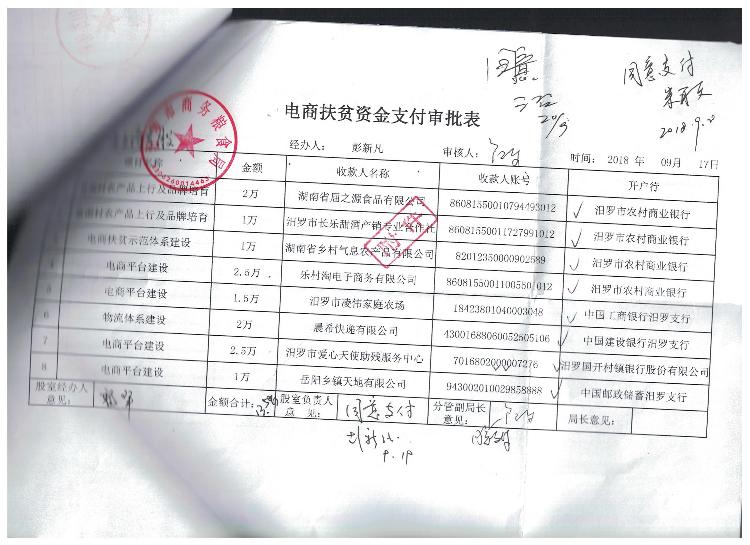 同意
同意支付
2018.9.
电商扶贫资金支付审批表
商务粮食局
经办人： 彭新凡 审核人： 时间： 2018 年 09月 17日
项目名称 金额 收款人名称 收款人账号 开户行
农产品上行及品牌培育 2万 湖南省屈之源食品有限公司 86081550010794493012 汨罗市农村商业银行
村农产品上行及品牌培育 1万 汨罗市长乐甜酒产销专业合作社 86081550011727991012 汨罗市农村商业银行
电商扶贫示范体系建设 1万 湖南省乡村气息农产品有限公司 82012350000902689 汨罗市农村商业银行
电商平台建设 2.5万 乐村淘电子商务有限公司 86081550011005501012 汨罗市农村商业银行
5 电商平台建设 1.5万 汨罗市凌祎家庭农场 18423801040003048 中国工商银行汨罗支行
6 物流体系建设 2万 晨希快递有限公司 43001688060052505106 中国建设银行汨罗支行
7 电商平台建设 2.5万 汨罗市爱心天使助残服务中心 7016802000007276 汨罗国开村镇银行股份有限公司
8 电商平台建设 1万 岳阳乡镇天地有限公司 943002010029858888 中国邮政储蓄汨罗支行
股室经办人意见： 金额合计： 股室负责人意见： 同意支付 分管副局长意见： 局长意见：
9.19